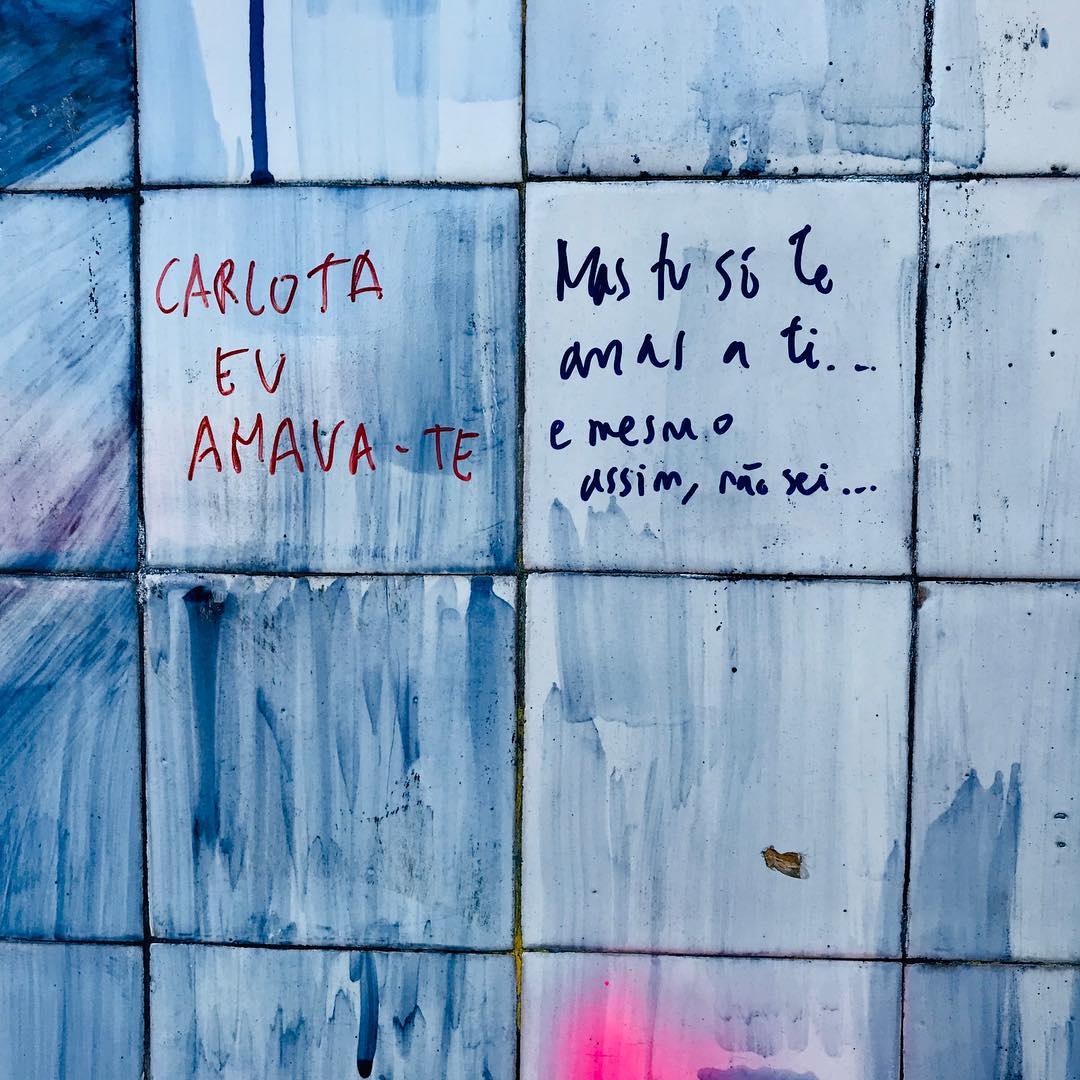 CARLOTA
EU
AMAVA-TE
Mas tu só te
amas a ti...
e mesmo
assim, não sei...